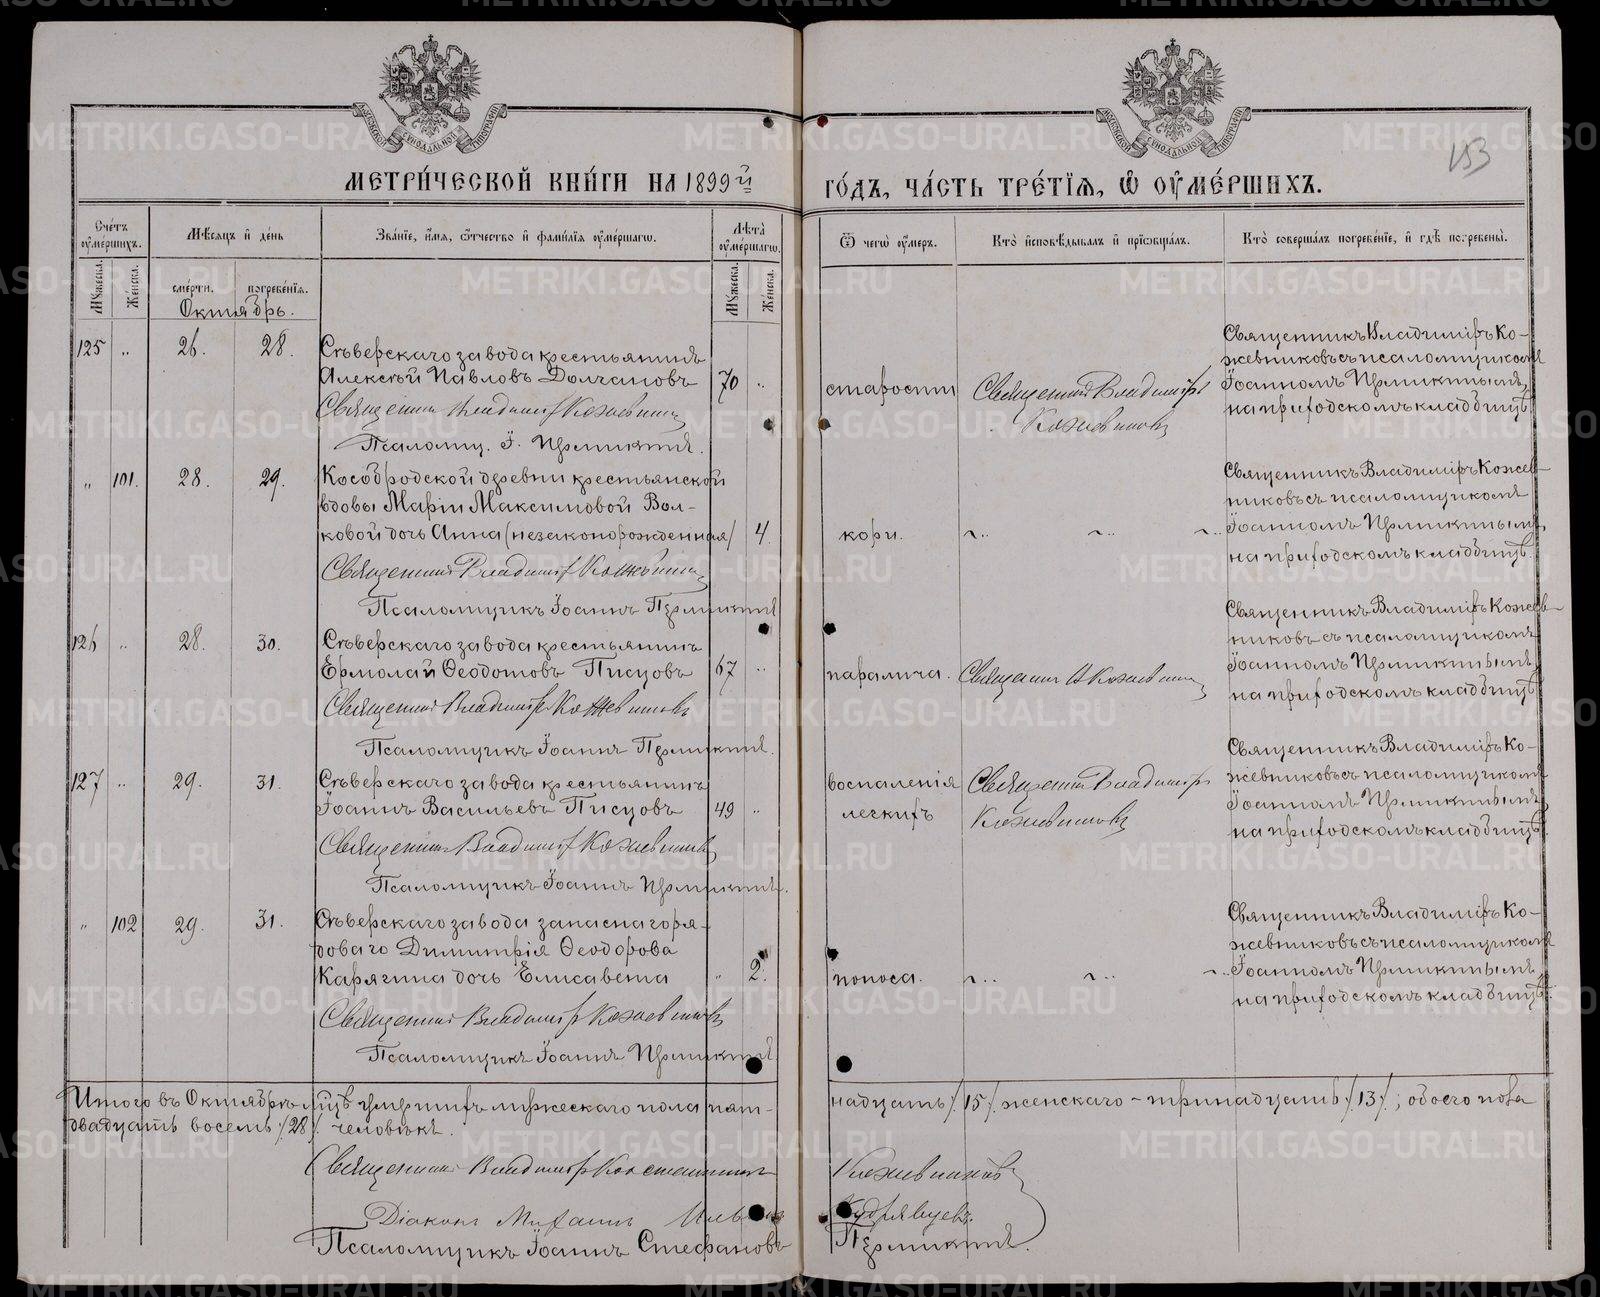 МЕТРИ́ЧЕСКОЙ КНИ́ГИ НА 1899й
ГО́ДЪ, ЧА́СТЬ ТРЕ́ТІѦ, Ѽ ОУМЕ́РШИХЪ.
153
Сче́тъ оумершихъ.
Мѣсяцъ и де́нь
Зва́нїе, и́мя, ѻ҆́тчество и фами́лїя оуме́ршагѡ.
Лѣта̀ оумершагѡ.
Ѿ чегѡ̀ оу́меръ.
Кто̀ исповѣ́дывалъ и прїѡбща́лъ.
Кто̀ соверша́лъ погребе́нїе, и гдѣ̀ погребены̀.
Мꙋжеска. Же́нска. сме́рти. погребе́нїѧ. Мꙋжеска. Же́нска.
Октябрь.
125 „ 26. 28.
Сѣверскаго завода крестьянинъ
Алексѣй Павловъ Долгановъ 70 „
Священникъ Владимiръ Кожевниковъ
Псаломщ. І. Пермикинъ.
старости
Священникъ Владимiръ
Кожевниковъ
Священникъ Владимiръ Ко-
жевниковъ съ псаломщикомъ
Іоанномъ Пермикинымъ
на приходскомъ кладбищѣ.
„ 101. 28. 29.
Кособродской деревни крестьянской
вдовы Марiи Максимовой Вол-
ковой дочь Анна (незаконорожденная) 4.
Священникъ Владимiръ Кожевниковъ
Псаломщикъ Іоаннъ Пермикинъ
кори.
Священникъ Владимiръ Кожев-
никовъ съ псаломщикомъ
Іоанномъ Пермикинымъ
на приходскомъ кладбищѣ.
126 „ 28. 30.
Сѣверскаго завода крестьянинъ
Ермолай Ѳеодотовъ Писцовъ 67 „
Священникъ Владимiръ Кожевниковъ
Псаломщикъ Іоаннъ Пермикинъ.
паралича.
Священникъ В Кожевниковъ
Священникъ Владимiръ Кожев-
никовъ съ псаломщикомъ
Іоанномъ Пермикинымъ
на приходскомъ кладбищѣ
127 „ 29. 31.
Сѣверскаго завода крестьянинъ
Іоаннъ Васильевъ Писцовъ 49 „
Священникъ Владимiръ Кожевниковъ
Псаломщикъ Іоаннъ Пермикинъ.
воспаленiя
легкихъ
Священникъ Владимiръ
Кожевниковъ
Священникъ Владимiръ Ко-
жевниковъ съ псаломщикомъ
Іоанномъ Пермикинымъ
на приходскомъ кладбищѣ.
„ 102 29. 31.
Сѣверскаго завода запаснаго ря-
доваго Димитрiя Ѳеодорова
Карягина дочь Елисавета „ 2.
Священникъ Владимiръ Кожевниковъ
Псаломщикъ Іоаннъ Пермикинъ
поноса.
Священникъ Владимiръ Ко-
жевниковъ съ псаломщикомъ
Іоанномъ Пермикинымъ
на приходскомъ кладбищѣ.
Итого въ Октябрѣ м-цѣ умершихъ мужескаго пола пят-
надцать /15/ женскаго - тринадцать /13/; обоего пола
двадцать восемь /28/ человѣкъ.
Священникъ Владимiръ Константиновъ Кожевниковъ
Дiаконъ Михаилъ Кудрявцевъ.
Псаломщикъ Іоаннъ Стефановъ Пермикинъ.
METRIKI.GASO-URAL.RU